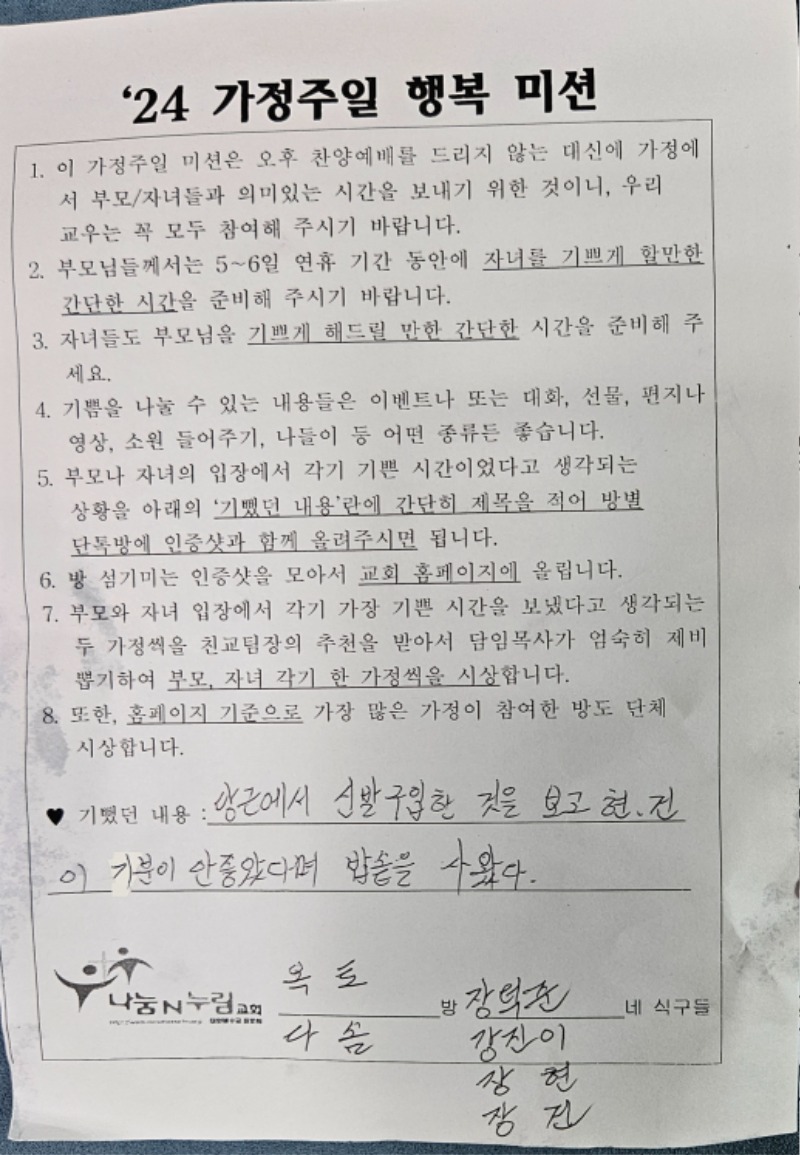 '24 가정주일 행복 미션
1. 이 가정주일 미션은 오후 찬양예배를 드리지 않는 대신에 가정에
서 부모/자녀들과 의미있는 시간을 보내기 위한 것이니, 우리
교우는 꼭 모두 참여해 주시기 바랍니다.
2. 부모님들께서는 5~6일 연휴 기간 동안에 자녀를 기쁘게 할만한
간단한 시간을 준비해 주시기 바랍니다.
3. 자녀들도 부모님을 기쁘게 해드릴 만한 간단한 시간을 준비해 주
세요.
4. 기쁨을 나눌 수 있는 내용들은 이벤트나 또는 대화, 선물, 편지나
영상, 소원 들어주기, 나들이 등 어떤 종류든 좋습니다.
5. 부모나 자녀의 입장에서 각기 기쁜 시간이었다고 생각되는
상황을 아래의 '기뻤던 내용'란에 간단히 제목을 적어 방별
단톡방에 인증샷과 함께 올려주시면 됩니다.
6. 방 섬기미는 인증샷을 모아서 교회 홈페이지에 올립니다.
7. 부모와 자녀 입장에서 각기 가장 기쁜 시간을 보냈다고 생각되는
두 가정씩을 친교팀장의 추천을 받아서 담임목사가 엄숙히 제비
뽑기하여 부모, 자녀 각기 한 가정씩을 시상합니다.
8. 또한, 홈페이지 기준으로 가장 많은 가정이 참여한 방도 단체
시상합니다.
♥ 기뻤던 내용 : 당근에서 신발구입한 것을 보고 현.진
이 기분이 안좋았다며 밥솥을 사왔다.
나눔N누림교회
옥토 방 장덕준 네 식구들
다솜 강진이
장 현
장 진